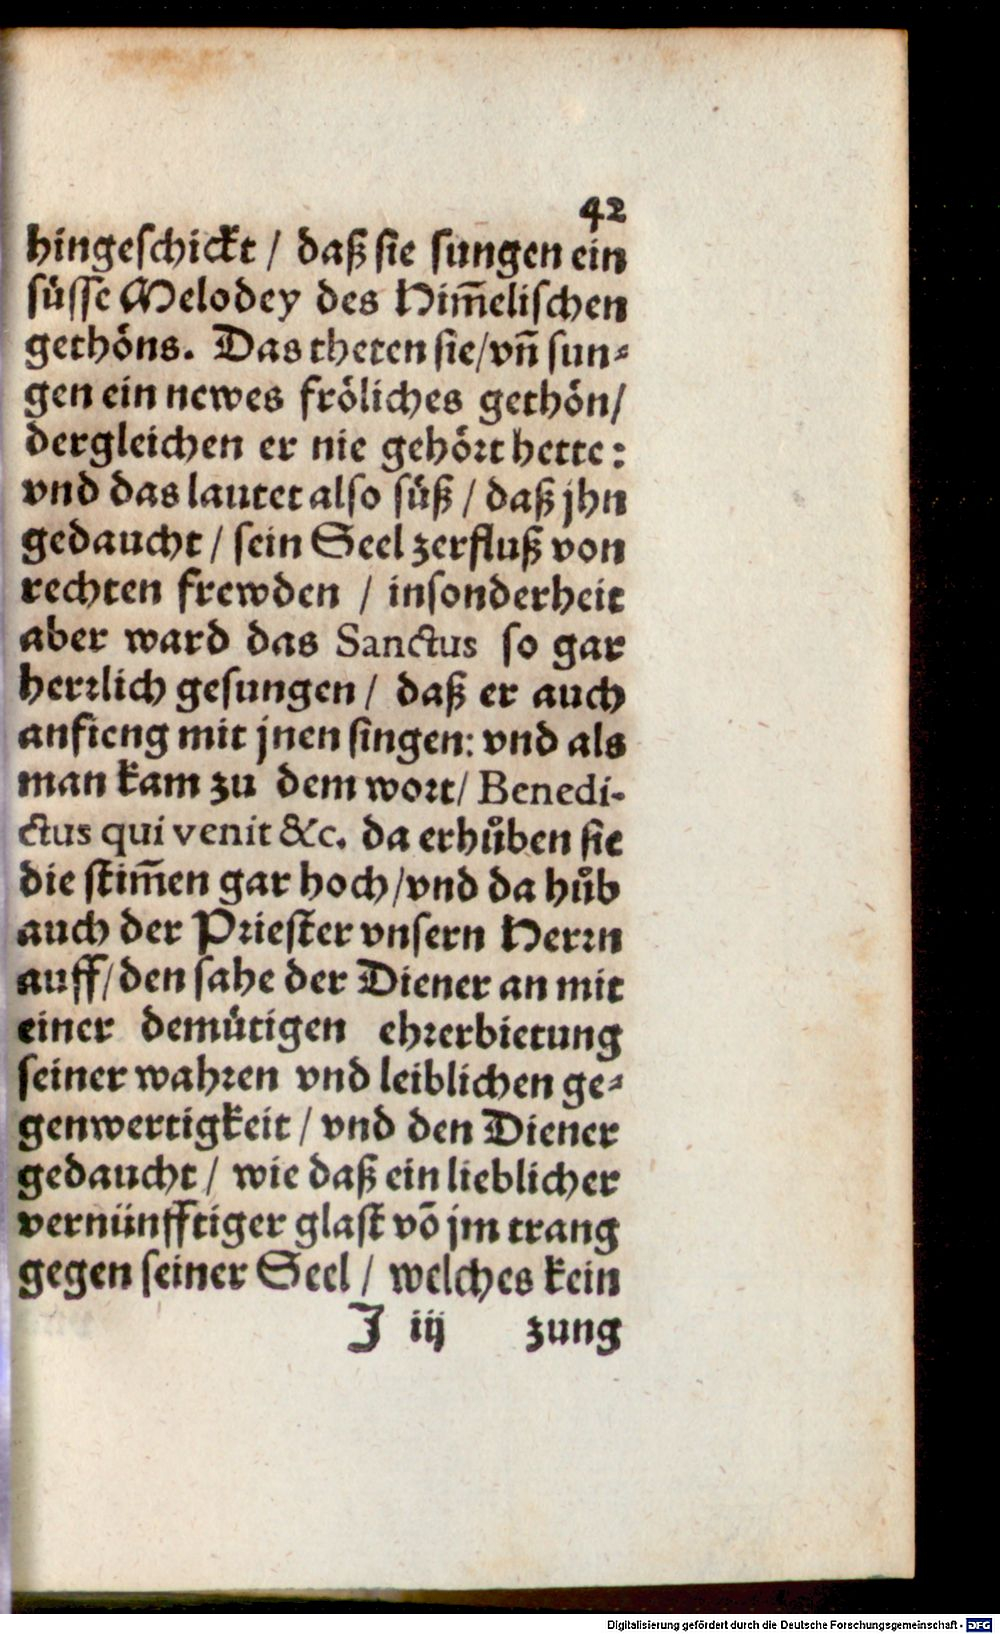 42
hingeschickt / daß sie sungen ein
süsse Melodey des Him̃elischen
gethöns. Das theten sie/vñ sun⸗
gen ein newes fröliches gethön/
dergleichen er nie gehört hette:
vnd das lautet also süß / daß jhn
gedaucht / sein Seel zerfluß von
rechten frewden / insonderheit
aber ward das Sanctus so gar
herrlich gesungen / daß er auch
anfieng mit jnen singen: vnd als
man kam zu dem wort/ Benedi-
ctus qui venit &c. da erhůben sie
die stim̃en gar hoch/vnd da hůb
auch der Priester vnsern Herrn
auff/den sahe der Diener an mit
einer demütigen ehrerbietung
seiner wahren vnd leiblichen ge⸗
genwertigkeit / vnd den Diener
gedaucht / wie daß ein lieblicher
vernünfftiger glast võ jm trang
gegen seiner Seel / welches kein
J iij zung
Digitalisierung gefördert durch die Deutsche Forschungsgemeinschaft - DFG